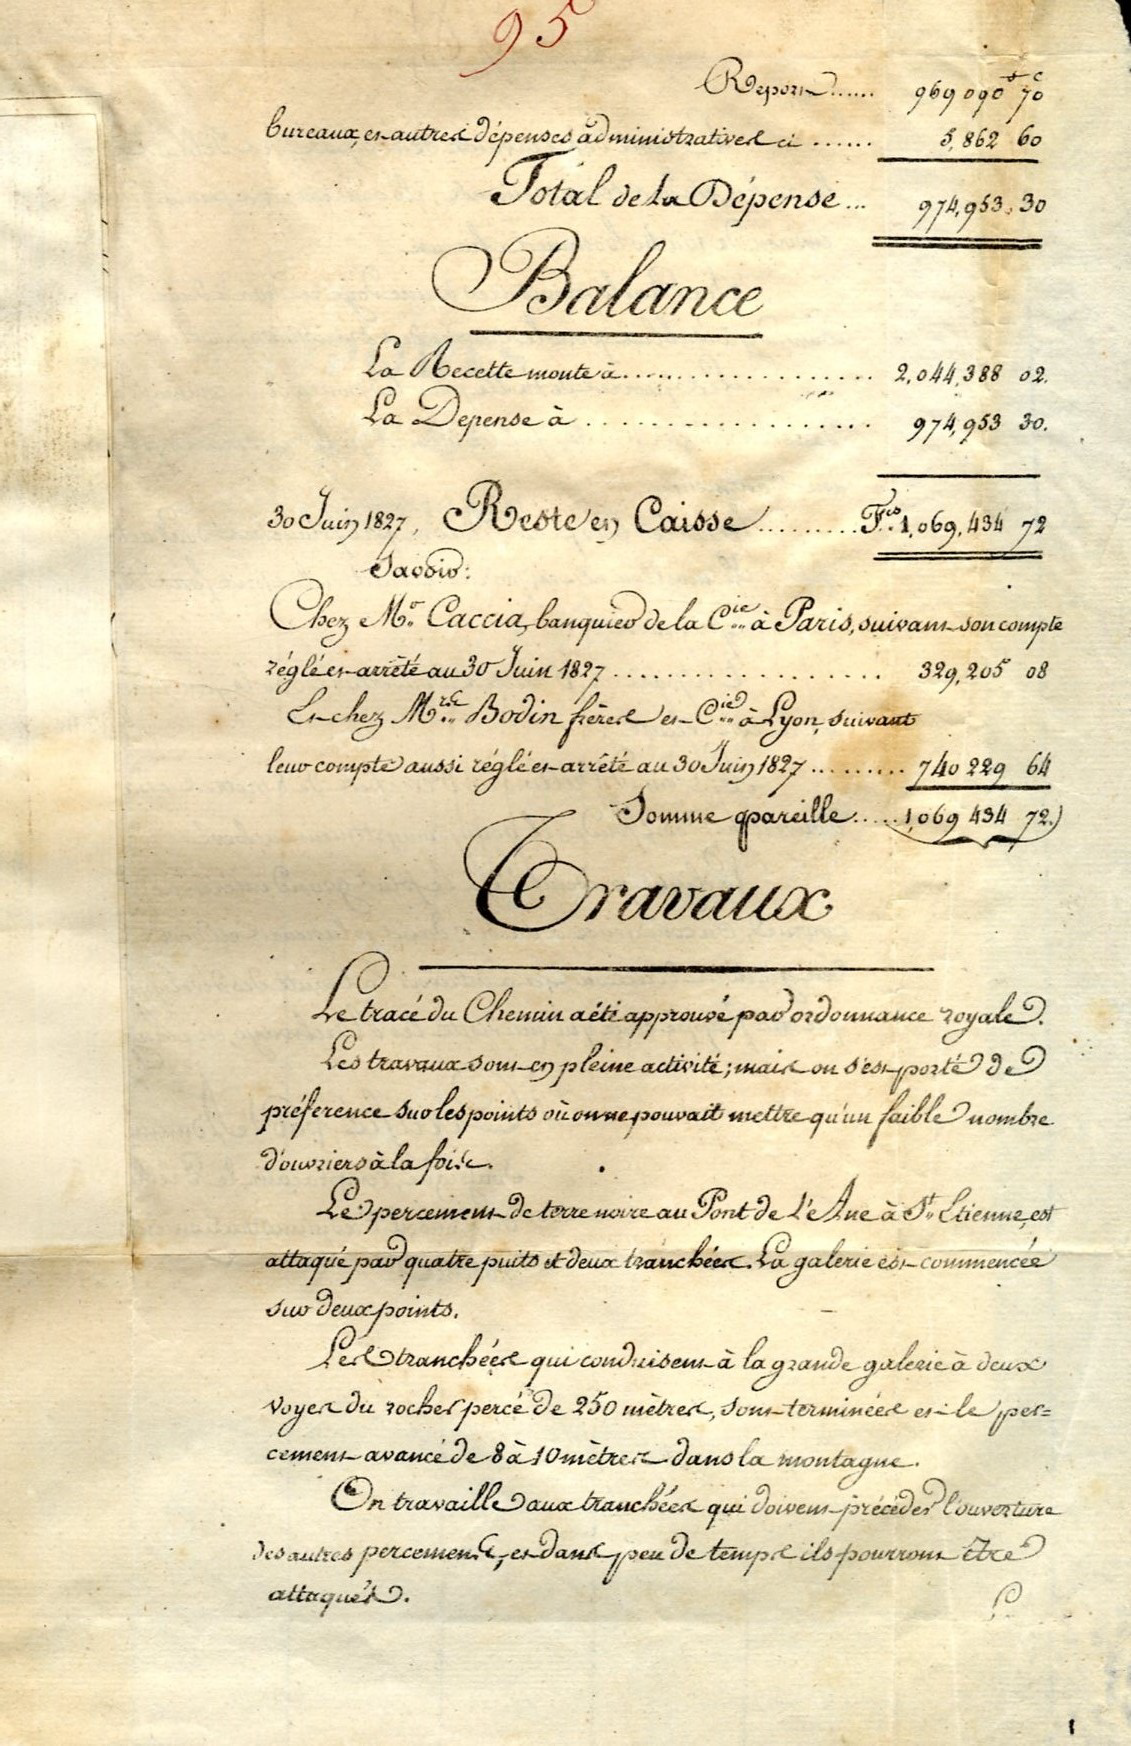 95
Report...... 969 090 f 70 c
bureaux, et autres dépenses administratives ci ...... 5,862 60
Total de la Dépense... 974,953, 30
Balance
La Recette monte à.................. 2,044,388 02.
La Depense à .................. 974,953 30.
30 Juin 1827, Reste en Caisse......... Fcs 1,069,434 72
Savoir:
Chez Mr. Caccia, banquier de la Cie à Paris, suivant son compte
réglé et arrêté au 30 Juin 1827 .................. 329,205 08
Et chez Mrs. Bodin frères et Cie à Lyon, suivant
leur compte aussi réglé et arrêté au 30 Juin 1827 ......... 740 229 64
Somme pareille..... 1,069 434 72.)
Travaux
Le tracé du Chemin a été approuvé par ordonnance royale.
Les travaux sont en pleine activité; mais on s'est porté de
préference sur les points où on ne pouvait mettre qu'un faible nombre
d'ouvriers à la fois.
Le percement de terre noire au Pont de L'eAne à St. Etienne, est
attaqué par quatre puits et deux tranchées. La galerie est commencée
sur deux points.
Les tranchées qui conduisent à la grande galerie à deux
voyes du rocher percé de 250 mètres, sont terminées et le per=
cement avancé de 8 à 10 mètres dans la montagne.
On travaille aux tranchées qui doivent précéder l'ouverture
des autres percements, et dans peu de temps ils pourront être
attaqués.